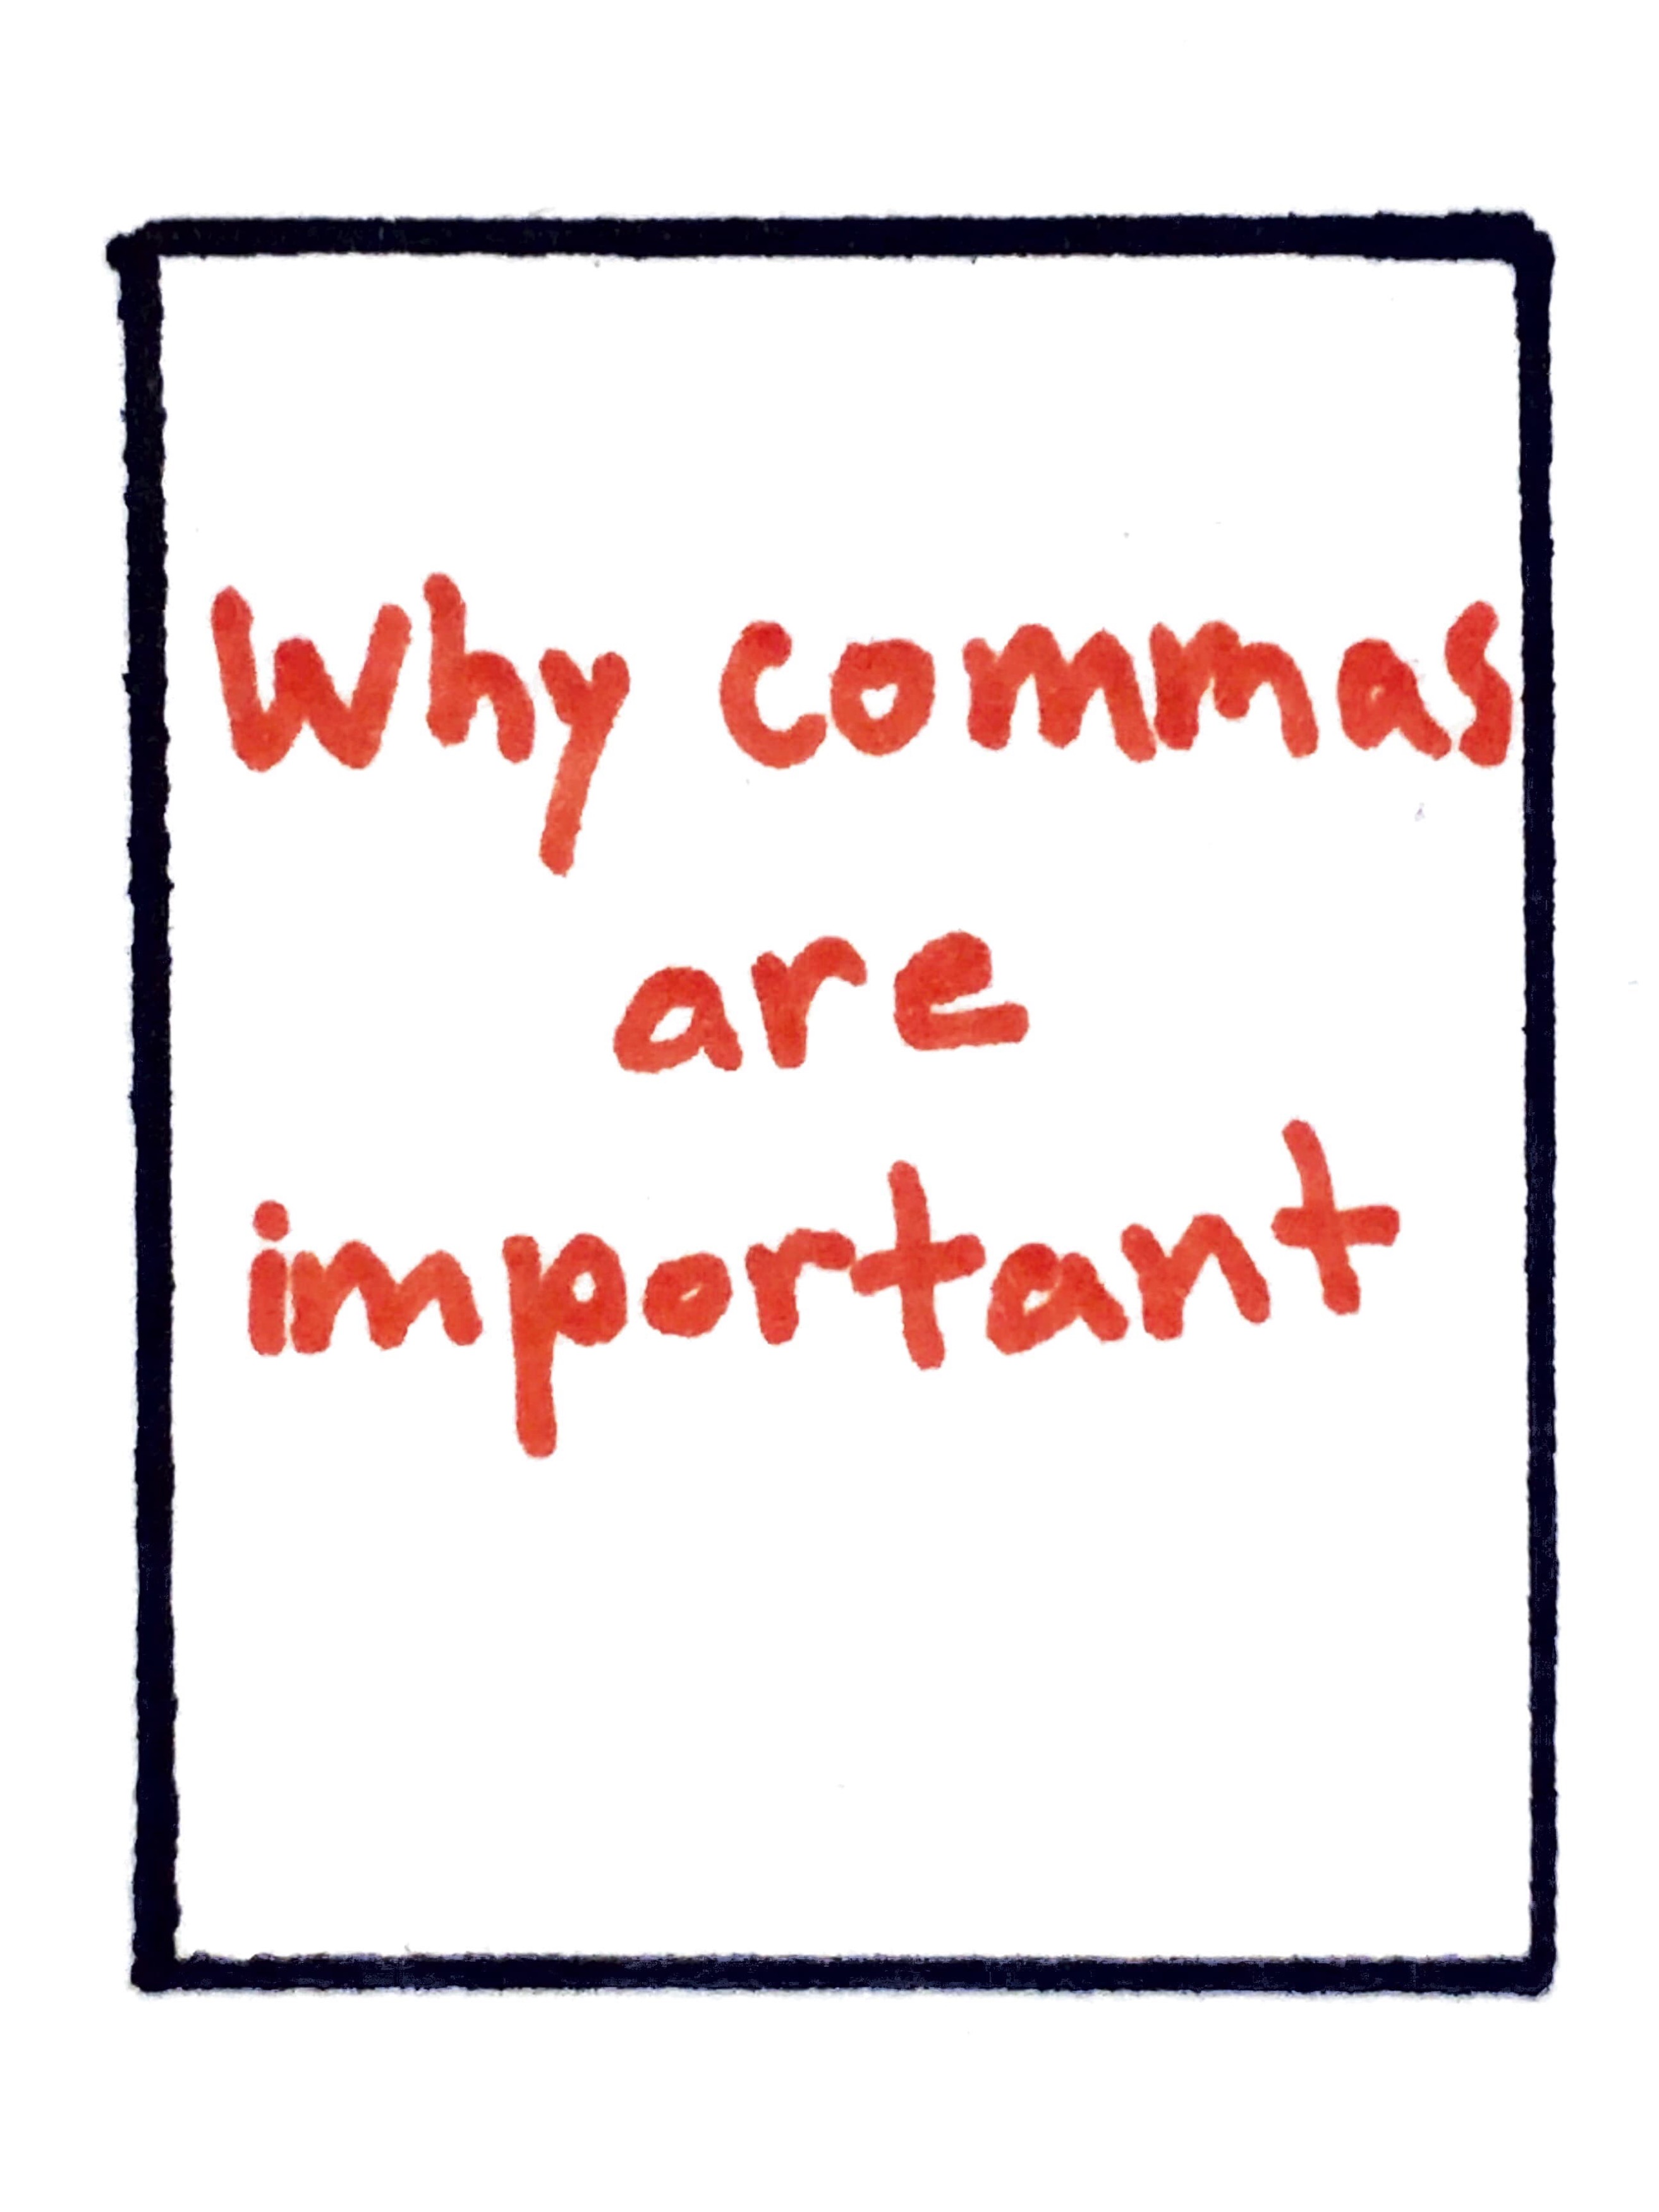 Why commas
are
important